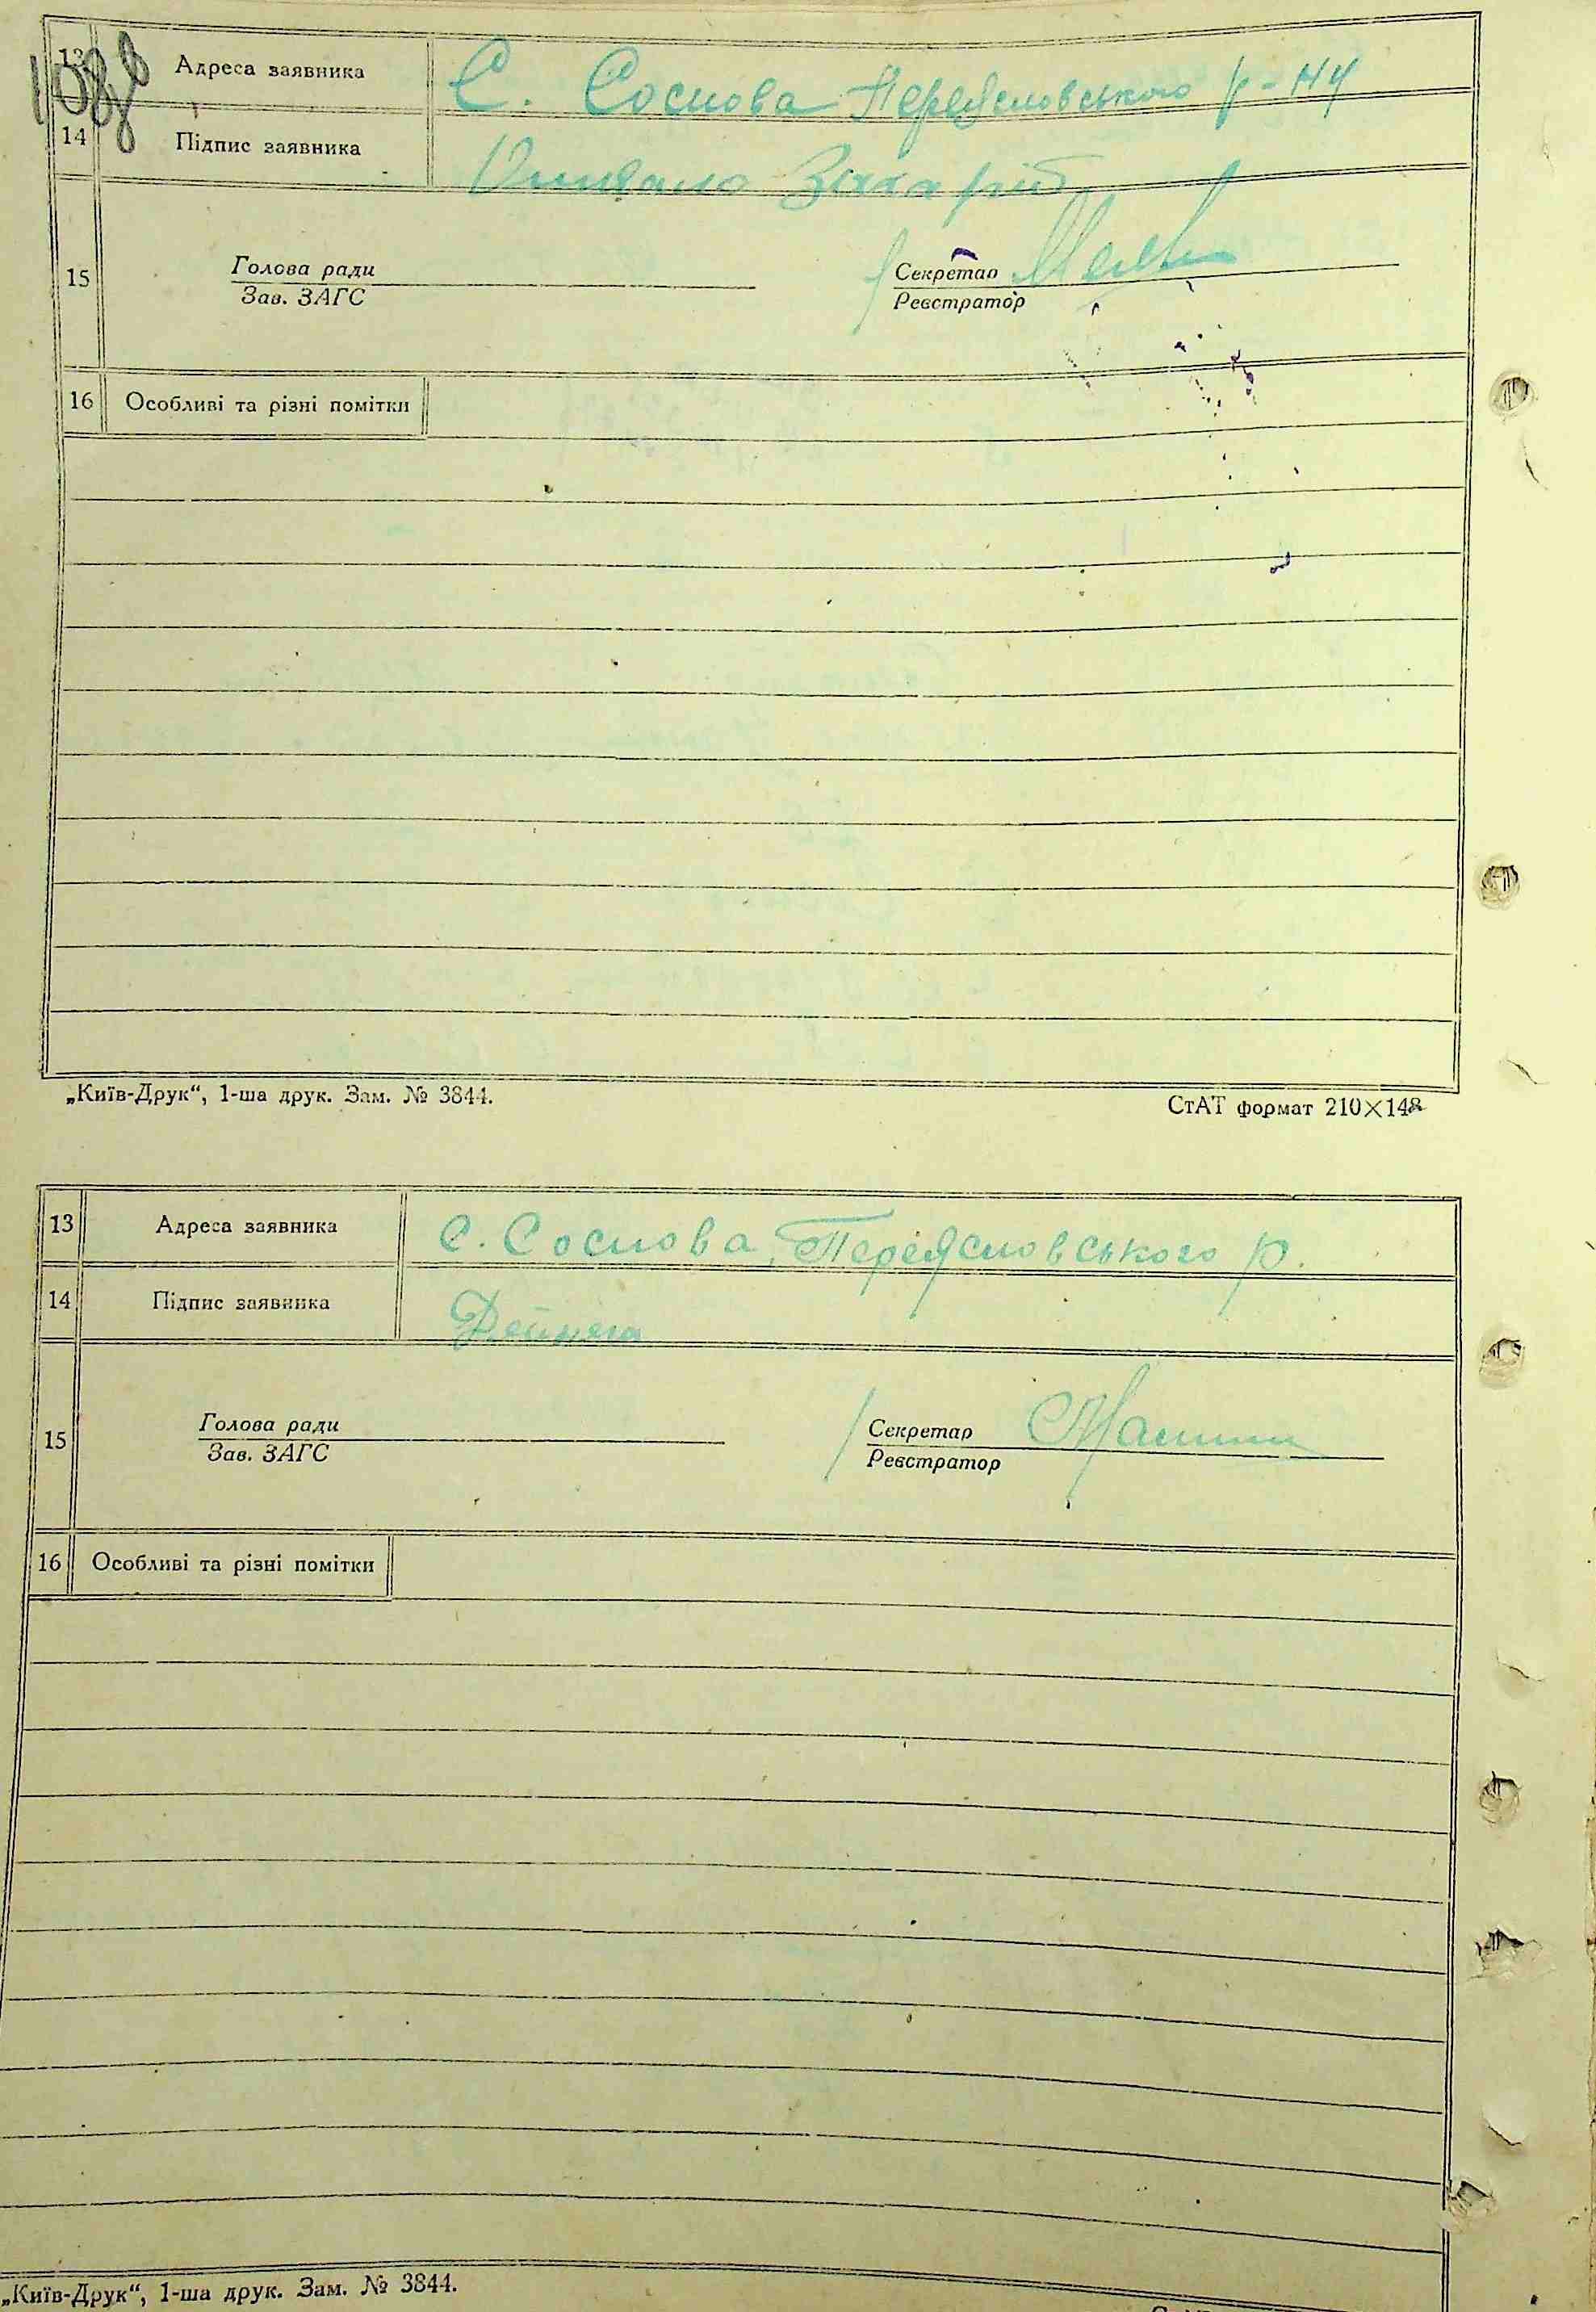 108
13 Адреса заявника С. Соснова Переяславського р-ну
14 Підпис заявника Захарій
15 Голова ради Секретар
Зав. ЗАГС Реєстратор
16 Особливі та різні помітки
„Київ-Друк“, 1-ша друк. Зам. № 3844. СтАТ формат 210×148
13 Адреса заявника с. Соснова, Переяславського р.
14 Підпис заявника Дейнега
15 Голова ради Секретар
Зав. ЗАГС Реєстратор
16 Особливі та різні помітки
„Київ-Друк“, 1-ша друк. Зам. № 3844.